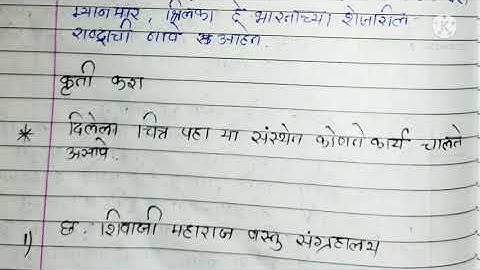 म्यानमार, श्रीलंका हे भारताच्या शेजारील
राष्ट्राची नावे आहेत.
कृती करा
* दिलेला चित्र पहा या संस्थेत कोणते कार्य चालते
असावे.
1) छ. शिवाजी महाराज वस्तु संग्रहालय